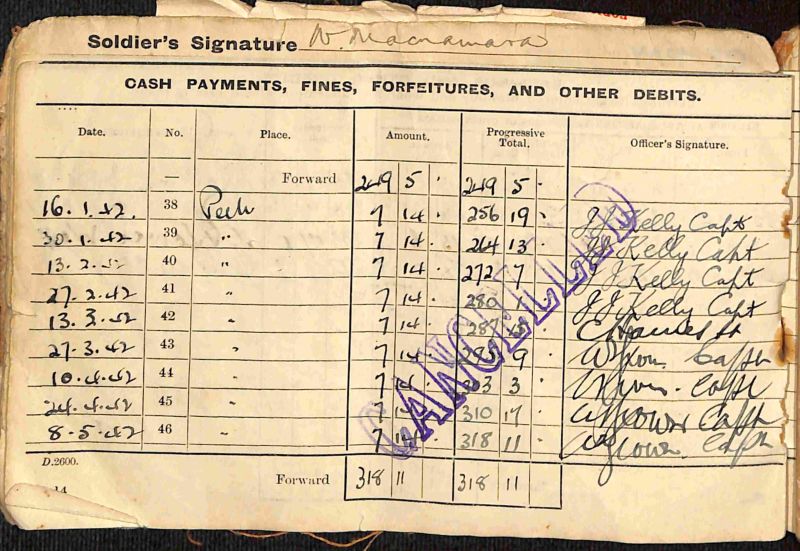 Soldier's Signature W. Macnamara
CASH PAYMENTS, FINES, FORFEITURES, AND OTHER DEBITS.
Date. No. Place. Amount. Progressive Total. Officer's Signature.
— Forward 249 5 · 249 5 ·
16.1.42. 38 7 14 · 256 19 · JJ Kelly Capt
30.1.42 39 " 7 14 · 264 13 · JJ Kelly Capt
13.2.42 40 " 7 14 · 272 7 · JJ Kelly Capt
27.2.42 41 " 7 14 · 280 1 · JJ Kelly Capt
13.3.42 42 " 7 14 · 287 15 ·
27.3.42 43 " 7 14 · 295 9 · Capt
10.4.42 44 " 7 14 · 303 3 · Capt
24.4.42 45 " 7 14 · 310 17 · Capt
8.5.42 46 " 7 14 · 318 11 · Capt
CANCELLED
D.2600.
Forward 318 11 318 11
14